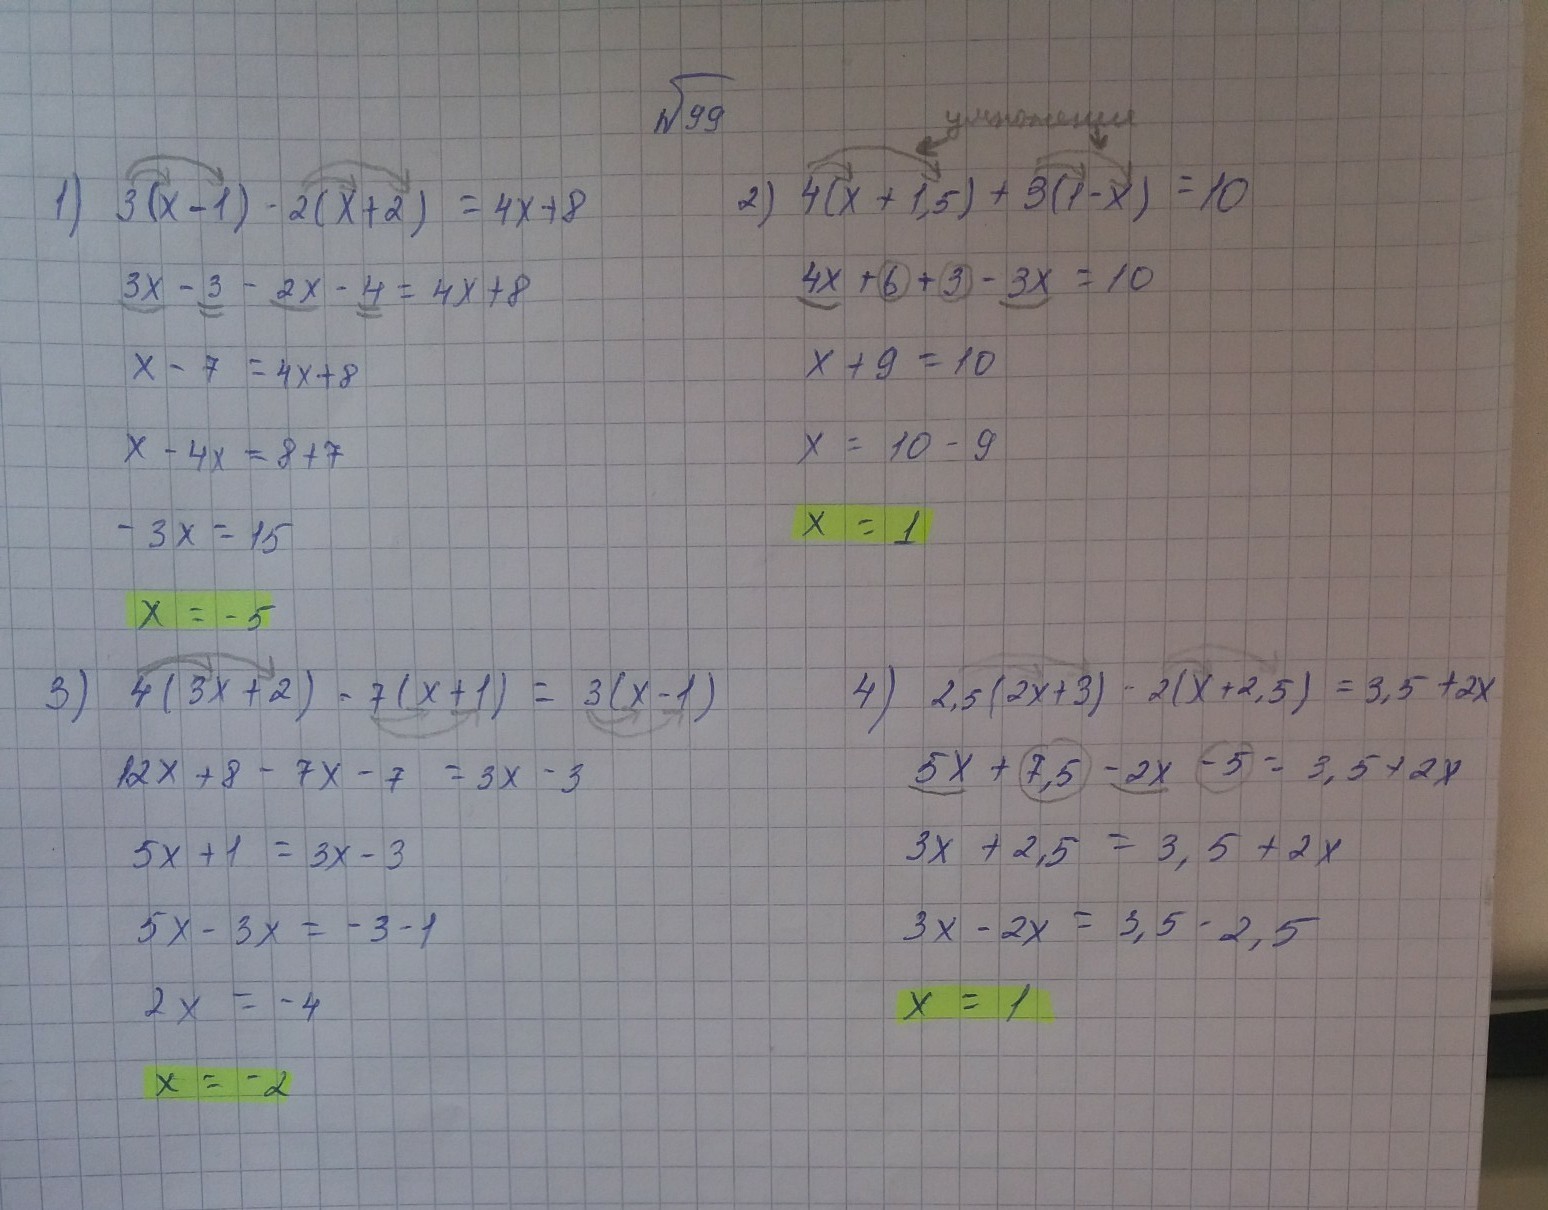 №99
умножение
1) 3(x-1) - 2(x+2) = 4x+8
3x - 3 - 2x - 4 = 4x+8
x - 7 = 4x+8
x - 4x = 8+7
-3x = 15
x = -5
2) 4(x + 1,5) + 3(1-x) = 10
4x + 6 + 3 - 3x = 10
x + 9 = 10
x = 10 - 9
x = 1
3) 4(3x+2) - 7(x+1) = 3(x-1)
12x + 8 - 7x - 7 = 3x - 3
5x + 1 = 3x - 3
5x - 3x = -3-1
2x = -4
x = -2
4) 2,5(2x+3) - 2(x+2,5) = 3,5+2x
5x + 7,5 - 2x - 5 = 3,5+2x
3x + 2,5 = 3,5 + 2x
3x - 2x = 3,5 - 2,5
x = 1